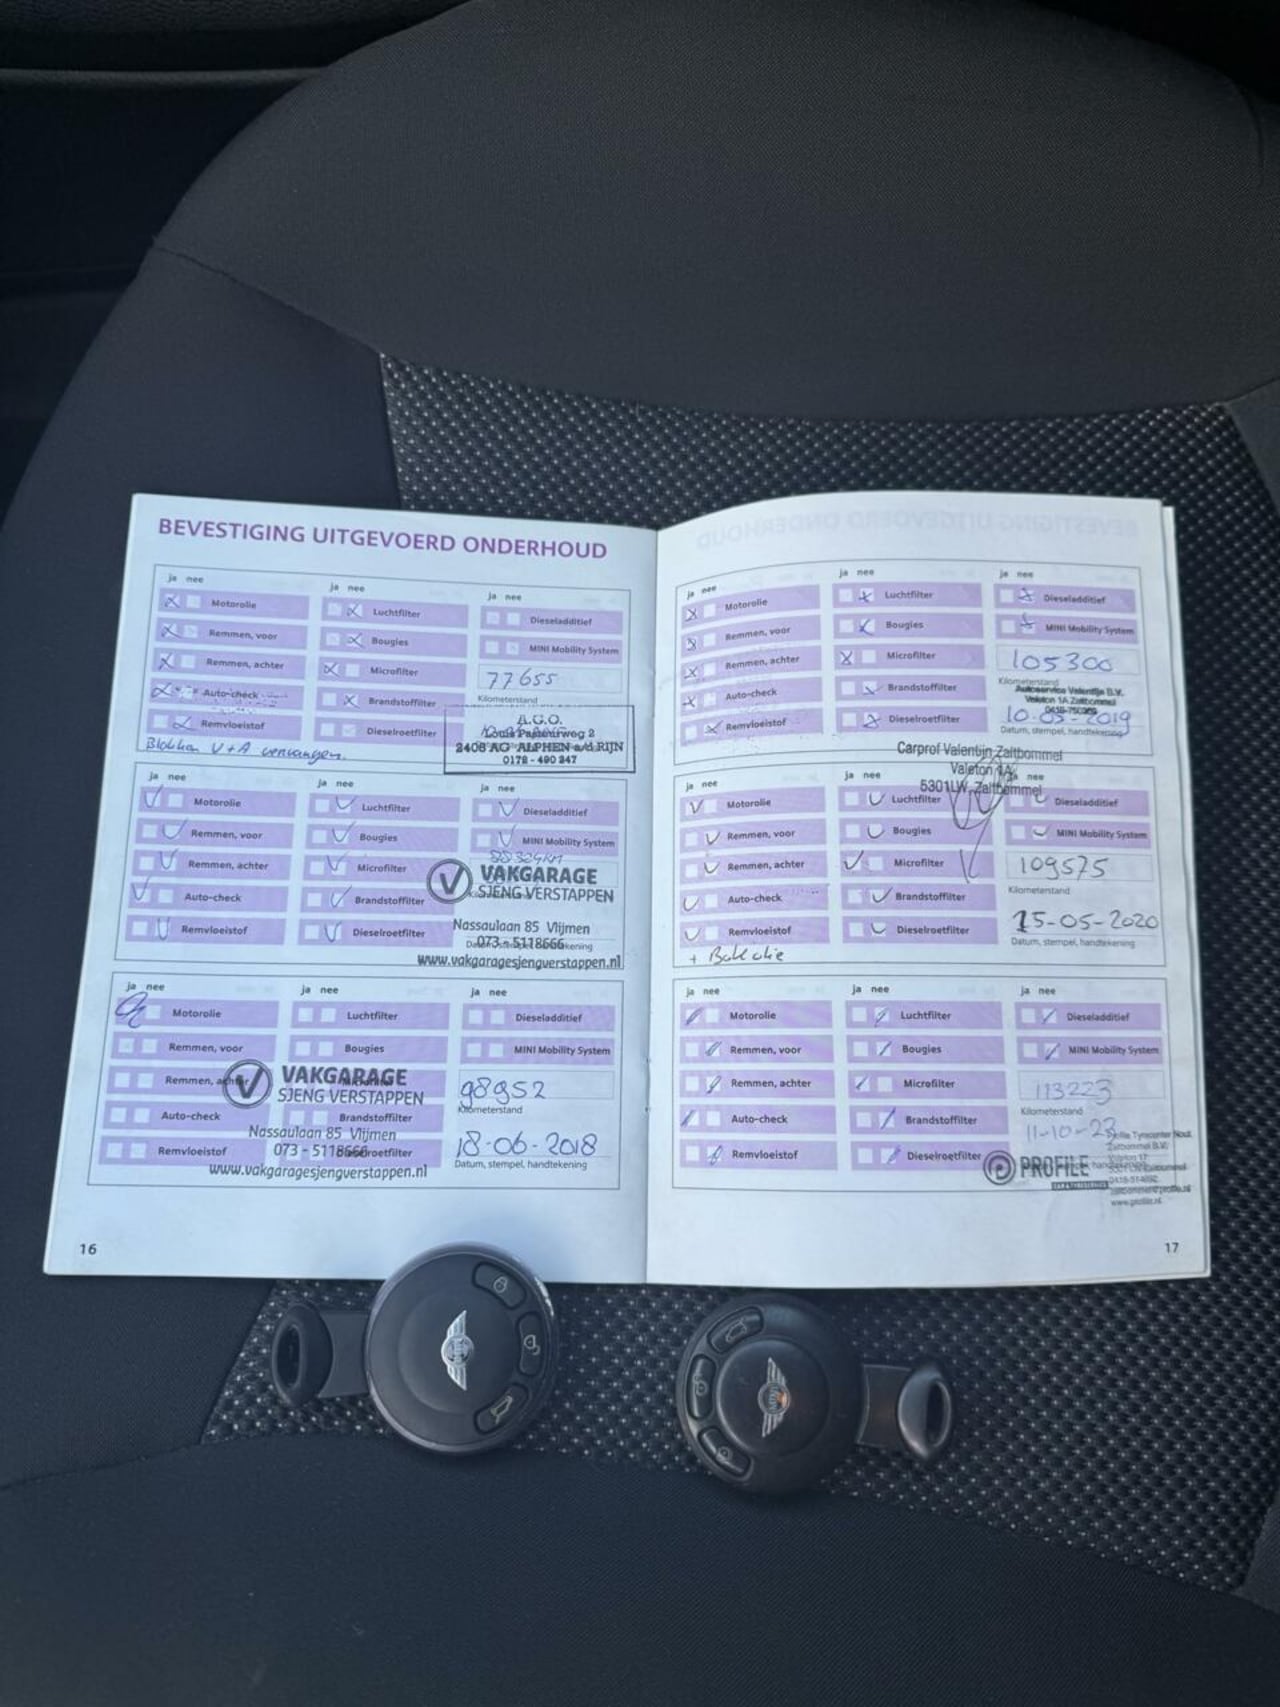 BEVESTIGING UITGEVOERD ONDERHOUD
ja nee
ja nee
ja nee
Motorolie
Luchtfilter
Dieseladditief
Remmen, voor
Bougies
MINI Mobility System
Remmen, achter
Microfilter
77655
Kilometerstand
Auto-check
Brandstoffilter
Remvloeistof
Dieselroetfilter
A.G.O.
Louis Pasteurweg 2
2408 AG ALPHEN a/d RIJN
0172 - 490 247
Blokken V+A vervangen.
ja nee
ja nee
ja nee
Motorolie
Luchtfilter
Dieseladditief
Remmen, voor
Bougies
MINI Mobility System
Remmen, achter
Microfilter
Auto-check
Brandstoffilter
Remvloeistof
Dieselroetfilter
VAKGARAGE
SJENG VERSTAPPEN
Nassaulaan 85 Vlijmen
073 - 5118666
www.vakgaragesjengverstappen.nl
ja nee
ja nee
ja nee
Motorolie
Luchtfilter
Dieseladditief
Remmen, voor
Bougies
MINI Mobility System
Remmen, achter
98952
Kilometerstand
Auto-check
Brandstoffilter
Remvloeistof
Dieselroetfilter
18-06-2018
Datum, stempel, handtekening
VAKGARAGE
SJENG VERSTAPPEN
Nassaulaan 85 Vlijmen
073 - 5118666
www.vakgaragesjengverstappen.nl
16
ja nee
ja nee
ja nee
Motorolie
Luchtfilter
Dieseladditief
Remmen, voor
Bougies
MINI Mobility System
Remmen, achter
Microfilter
105300
Kilometerstand
Auto-check
Brandstoffilter
Remvloeistof
Dieselroetfilter
Autoservice Valentijn B.V.
Valeton 1A Zaltbommel
10-05-2019
Datum, stempel, handtekening
Carprof Valentijn Zaltbommel
Valeton 1A
5301LW Zaltbommel
ja nee
ja nee
nee
Motorolie
Luchtfilter
Dieseladditief
Remmen, voor
Bougies
MINI Mobility System
Remmen, achter
Microfilter
109575
Kilometerstand
Auto-check
Brandstoffilter
Remvloeistof
Dieselroetfilter
15-05-2020
Datum, stempel, handtekening
+ Bak olie
ja nee
ja nee
ja nee
Motorolie
Luchtfilter
Dieseladditief
Remmen, voor
Bougies
MINI Mobility System
Remmen, achter
Microfilter
113223
Kilometerstand
Auto-check
Brandstoffilter
Remvloeistof
Dieselroetfilter
11-10-23
PROFILE
Zaltbommel B.V.
www.profile.nl
17